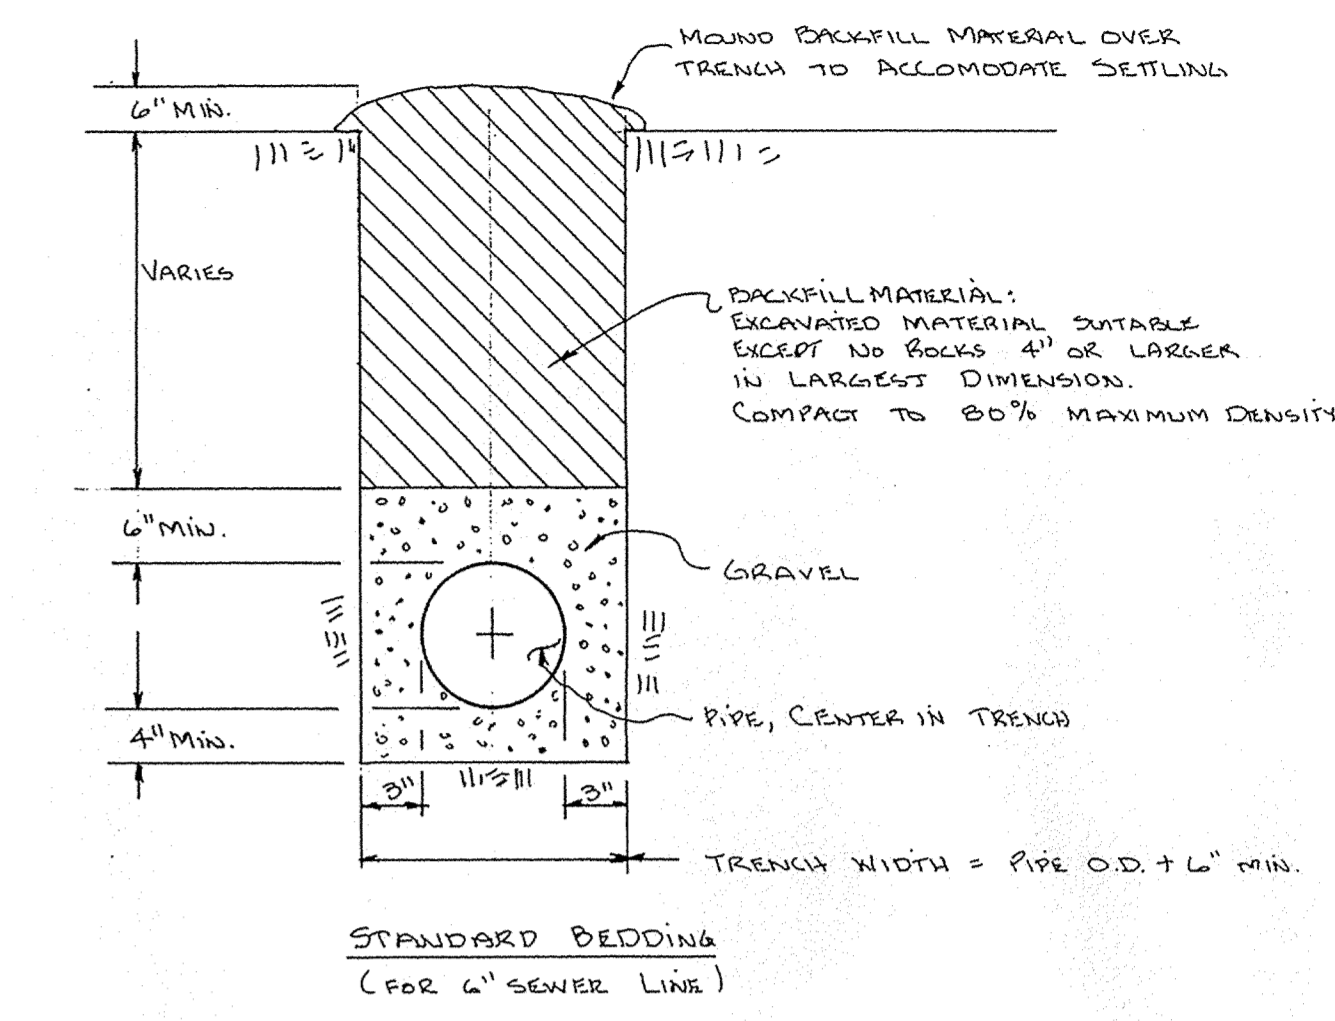 MOUND BACKFILL MATERIAL OVER
TRENCH TO ACCOMODATE SETTLING
6" MIN.
VARIES
BACKFILL MATERIAL:
EXCAVATED MATERIAL SUITABLE
EXCEPT NO ROCKS 4" OR LARGER
IN LARGEST DIMENSION.
COMPACT TO 80% MAXIMUM DENSITY
6" MIN.
GRAVEL
PIPE, CENTER IN TRENCH
4" MIN.
3"
3"
TRENCH WIDTH = PIPE O.D. + 6" MIN.
STANDARD BEDDING
(FOR 6" SEWER LINE)